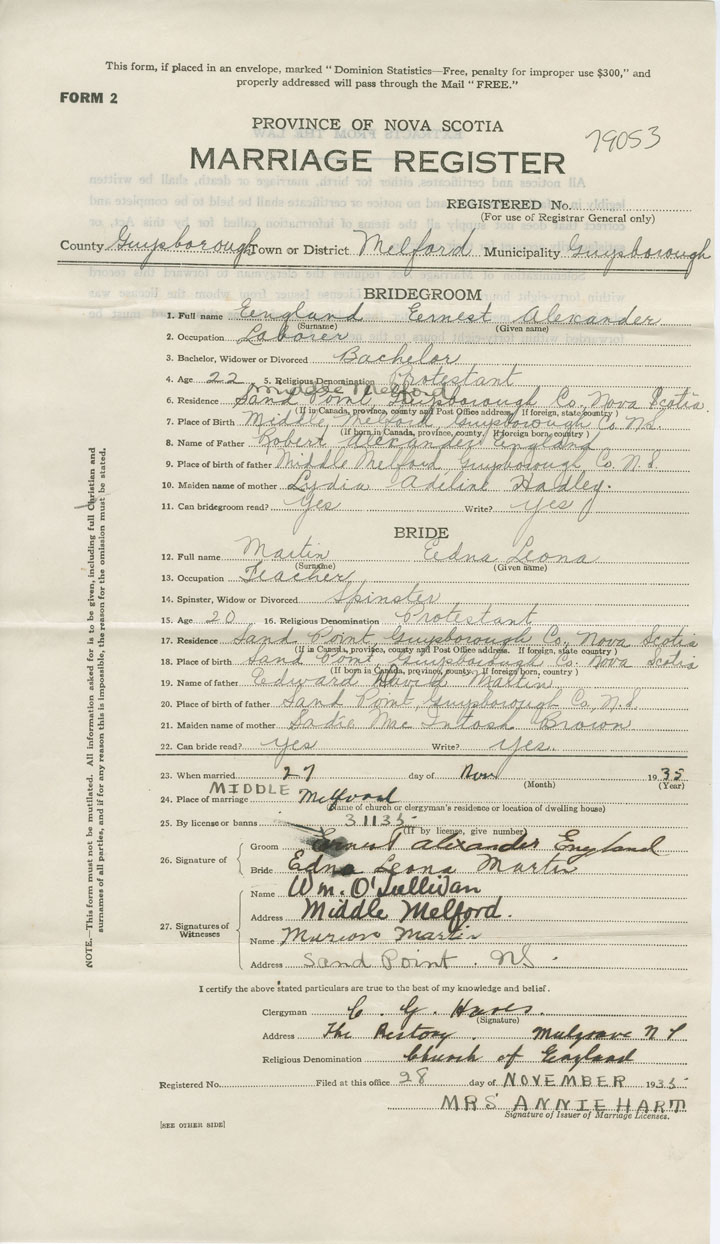 This form, if placed in an envelope, marked "Dominion Statistics—Free, penalty for improper use $300," and
properly addressed will pass through the Mail "FREE."
FORM 2
PROVINCE OF NOVA SCOTIA
79053
MARRIAGE REGISTER
REGISTERED No.
(For use of Registrar General only)
County Guysborough Town or District Melford Municipality Guysborough
BRIDEGROOM
1. Full name England Ernest Alexander
(Surname) (Given name)
2. Occupation Laborer
3. Bachelor, Widower or Divorced Bachelor
4. Age 22 5. Religious Denomination Protestant
Middle Melford
6. Residence Sand Point, Guysborough Co., Nova Scotia.
(If in Canada, province, county and Post Office address. If foreign, state country)
7. Place of Birth Middle Melford, Guysborough Co. N.S.
(If born in Canada, province, county. If foreign born, country)
8. Name of Father Robert Alexander England
9. Place of birth of father Middle Melford, Guysborough Co. N.S.
10. Maiden name of mother Lydia Adeline Hadley.
11. Can bridegroom read? Yes Write? yes
BRIDE
12. Full name Martin Edna Leona
(Surname) (Given name)
13. Occupation Teacher
14. Spinster, Widow or Divorced Spinster
15. Age 20 16. Religious Denomination Protestant
17. Residence Sand Point, Guysborough Co., Nova Scotia
(If in Canada, province, county and Post Office address. If foreign, state country)
18. Place of birth Sand Point, Guysborough Co. Nova Scotia
(If born in Canada, province, county. If foreign born, country)
19. Name of father Edward David Martin
20. Place of birth of father Sand Point, Guysborough Co, N.S.
21. Maiden name of mother Sadie Mac Intosh Brown
22. Can bride read? yes Write? yes.
23. When married 27 day of Nov 1935
(Month) (Year)
MIDDLE
24. Place of marriage Melford
(Name of church or clergyman's residence or location of dwelling house)
25. By license or banns 31135
(If by license, give number)
26. Signature of
Groom Ernest Alexander England
Bride Edna Leona Martin
27. Signatures of Witnesses
Name Wm. O'Sullivan
Address Middle Melford.
Name Marion Martin
Address Sand Point. NS.
I certify the above stated particulars are true to the best of my knowledge and belief.
Clergyman C. G.
(Signature)
Address The Rectory. Mulgrave N S
Religious Denomination Church of England
Registered No. Filed at this office 28 day of NOVEMBER 1935
MRS ANNIE HART
Signature of Issuer of Marriage Licenses.
[SEE OTHER SIDE]
NOTE.—This form must not be mutilated. All information asked for is to be given, including full Christian and
surnames of all parties, and if for any reason this is impossible, the reason for the omission must be stated.